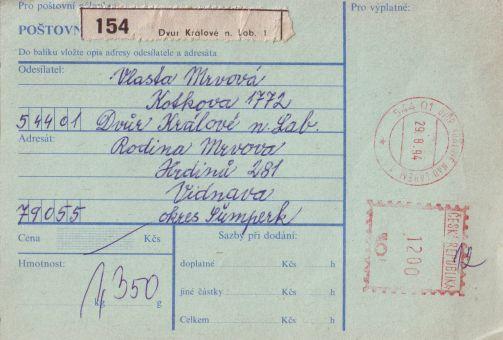 Pro poštovní
Pro výplatné:
154
Dvur Králové n. Lab. 1
POŠTOV
Do balíku vložte opis adresy odesílatele a adresáta
Odesílatel:
Vlasta Mrvová
Kotkova 1772
54401 Dvůr Králové n. Lab.
Adresát:
Rodina Mrvova
Hrdinů 281
Vidnava
79055 okres Šumperk
Cena Kčs
Sazby při dodání:
Hmotnost:
1,350
kg g
doplatné Kčs h
jiné částky Kčs h
Celkem Kčs h
544 01 DVŮR KRÁLOVÉ NAD LABEM 1
29.8.94
ČESKÁ REPUBLIKA
1200
12